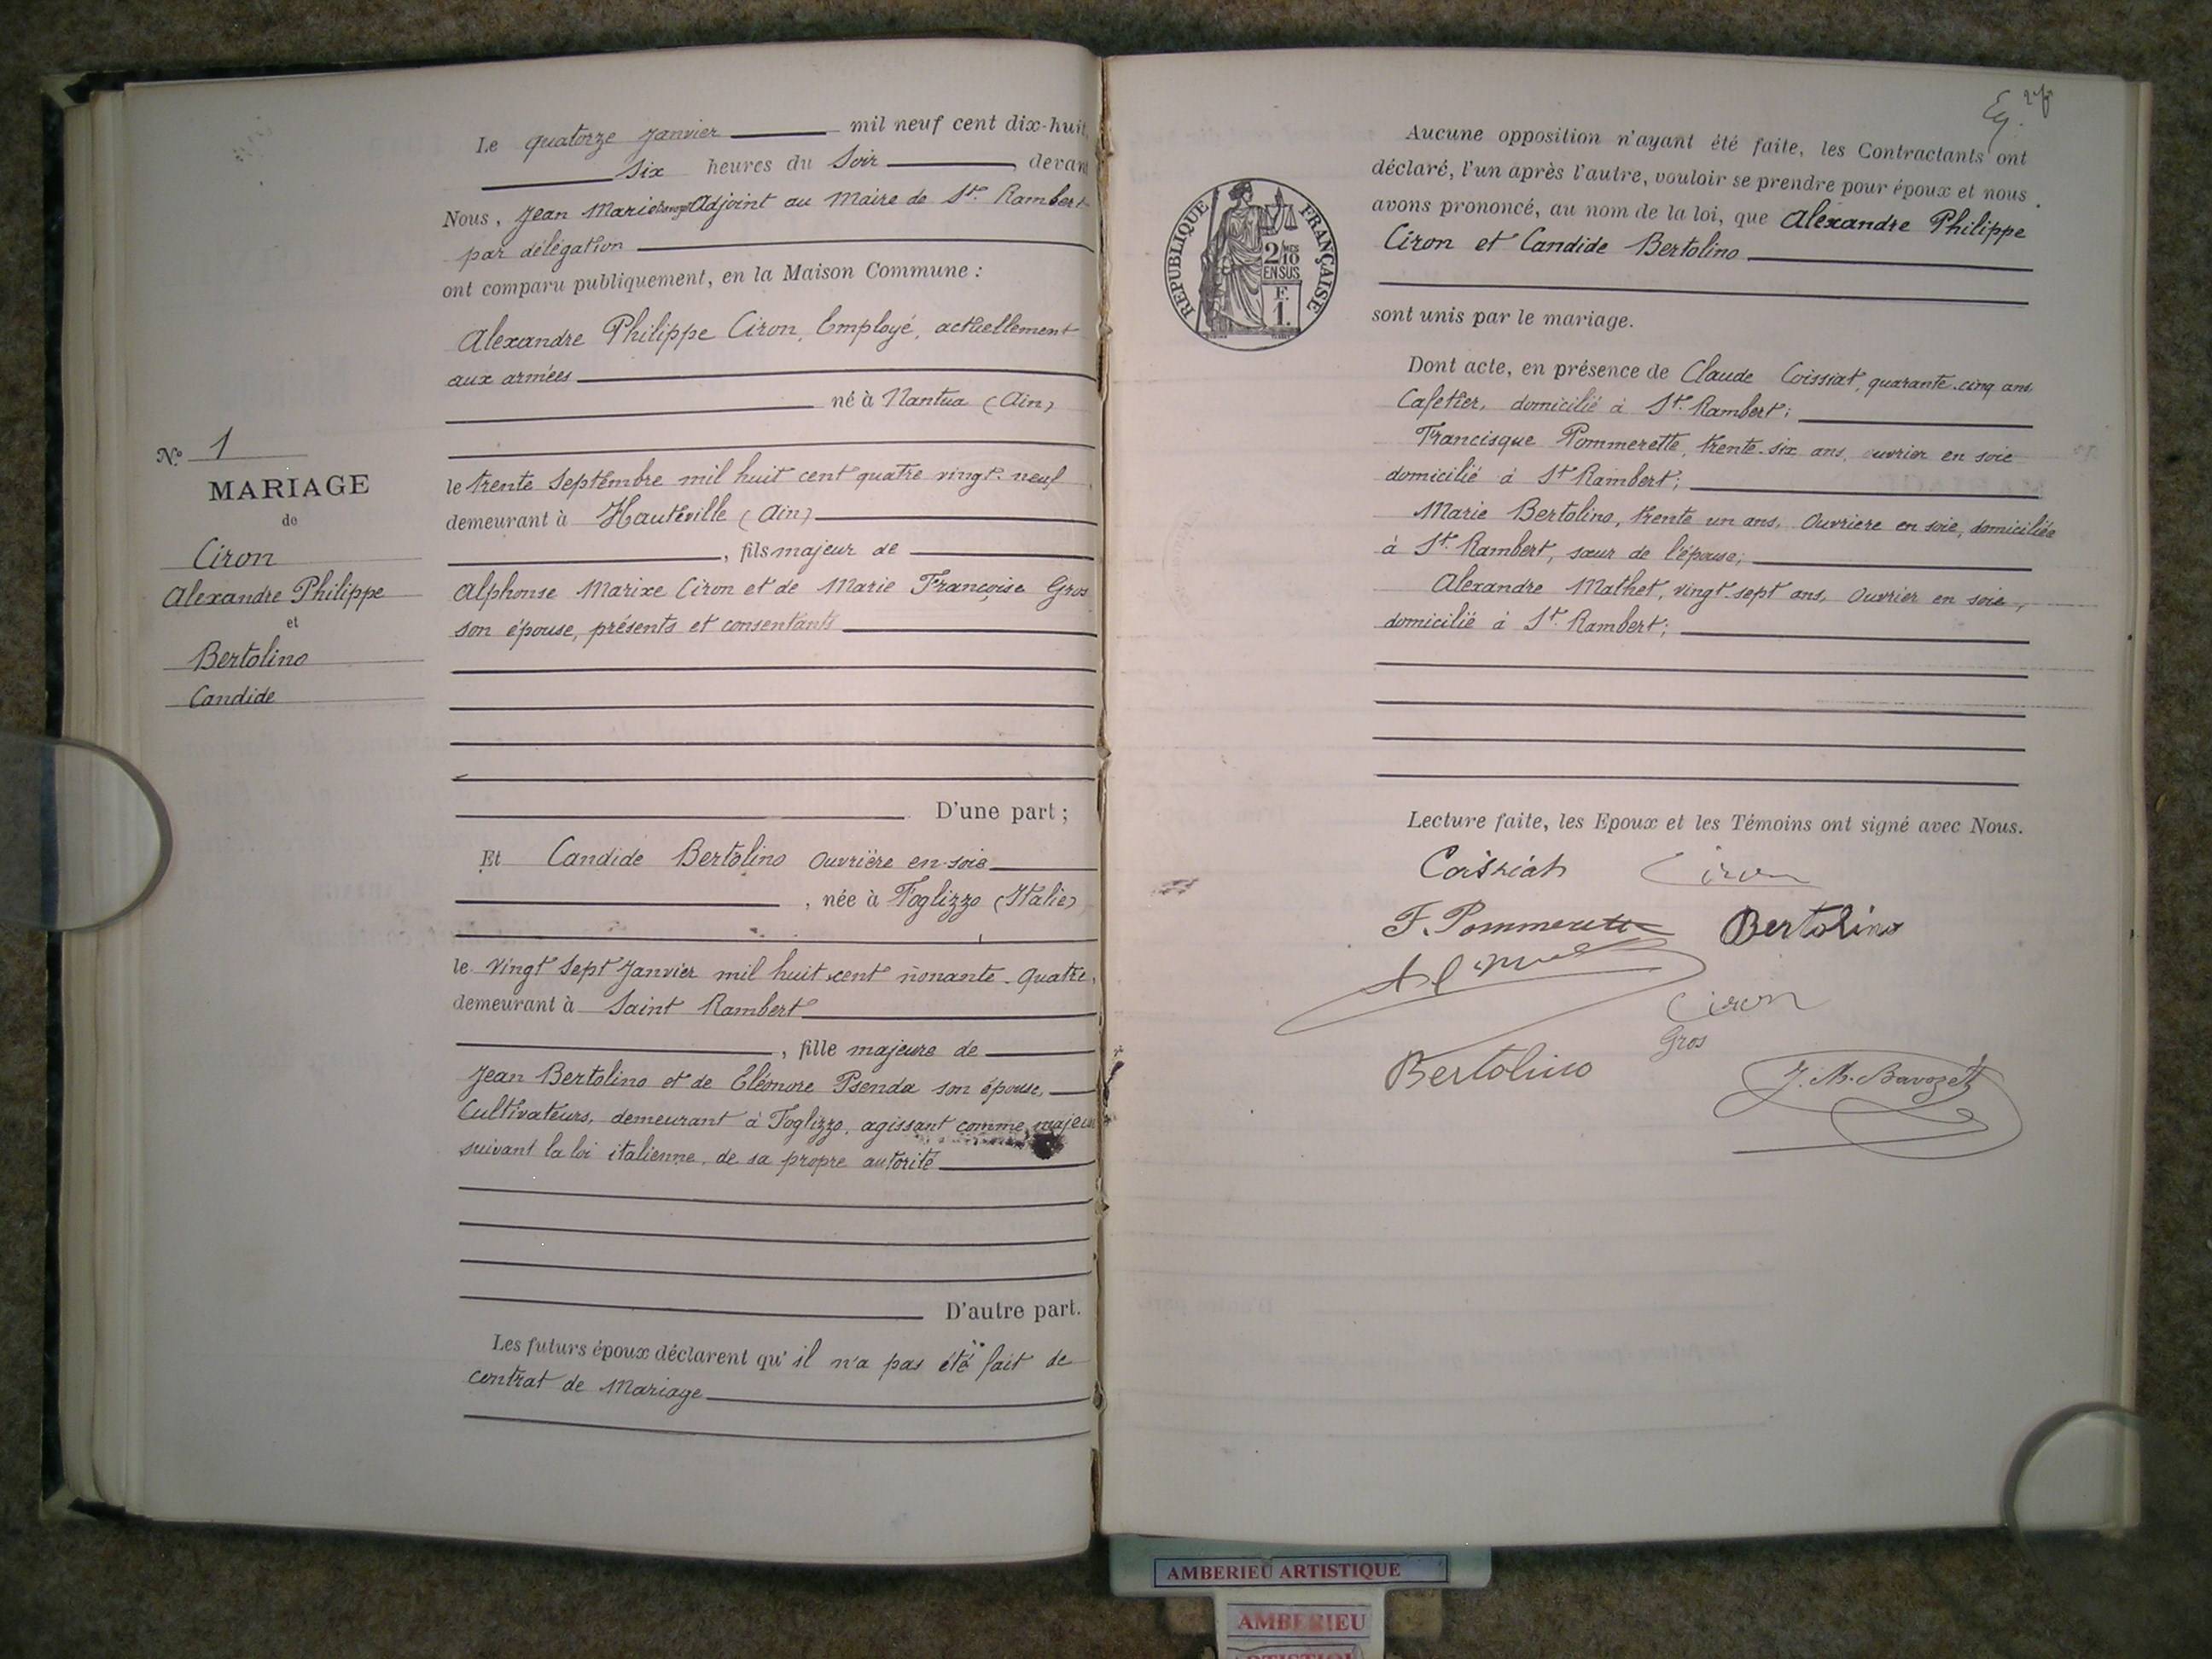 Le quatorze Janvier mil neuf cent dix-huit,
Six heures du Soir, devant
Nous, Jean Marie Adjoint au Maire de St. Rambert
par délégation
ont comparu publiquement, en la Maison Commune :
Alexandre Philippe Ciron, Employé, actuellement
aux armées
né à Nantua (Ain)
le trente Septembre mil huit cent quatre vingt-neuf
demeurant à Hauteville (Ain)
, fils majeur de
Alphonse Marixe Ciron et de Marie Françoise Gros
son épouse, présents et consentants
D'une part ;
Et Candide Bertolino Ouvrière en soie
, née à Foglizzo (Italie)
le vingt Sept Janvier mil huit cent nonante-quatre,
demeurant à Saint Rambert
, fille majeure de
Jean Bertolino et de Eléonore Psenda son épouse,
Cultivateurs, demeurant à Foglizzo, agissant comme majeure
suivant la loi italienne, de sa propre autorité
D'autre part.
Les futurs époux déclarent qu'il n'a pas été fait de
contrat de Mariage
N.o 1
MARIAGE
de
Ciron
Alexandre Philippe
et
Bertolino
Candide
Aucune opposition n'ayant été faite, les Contractants ont
déclaré, l'un après l'autre, vouloir se prendre pour époux et nous
avons prononcé, au nom de la loi, que Alexandre Philippe
Ciron et Candide Bertolino
sont unis par le mariage.
Dont acte, en présence de Claude Coissiat, quarante-cinq ans,
Cafetier, domicilié à St. Rambert;
Francisque Pommerette, trente-six ans, ouvrier en soie
domicilié à St Rambert;
Marie Bertolino, trente un ans, Ouvrière en soie, domiciliée
à St. Rambert, sœur de l'épouse;
Alexandre Mathet, vingt-sept ans, Ouvrier en soie,
domicilié à St. Rambert;
Lecture faite, les Epoux et les Témoins ont signé avec Nous.
Coissiat Ciron
F. Pommerette Bertolino
Ciron
Gros
Bertolino J. M. Bavozet
REPUBLIQUE FRANÇAISE
2/10 MES
EN SUS
F.
1.
AMBERIEU ARTISTIQUE
AMBERIEU
ARTISTIQUE